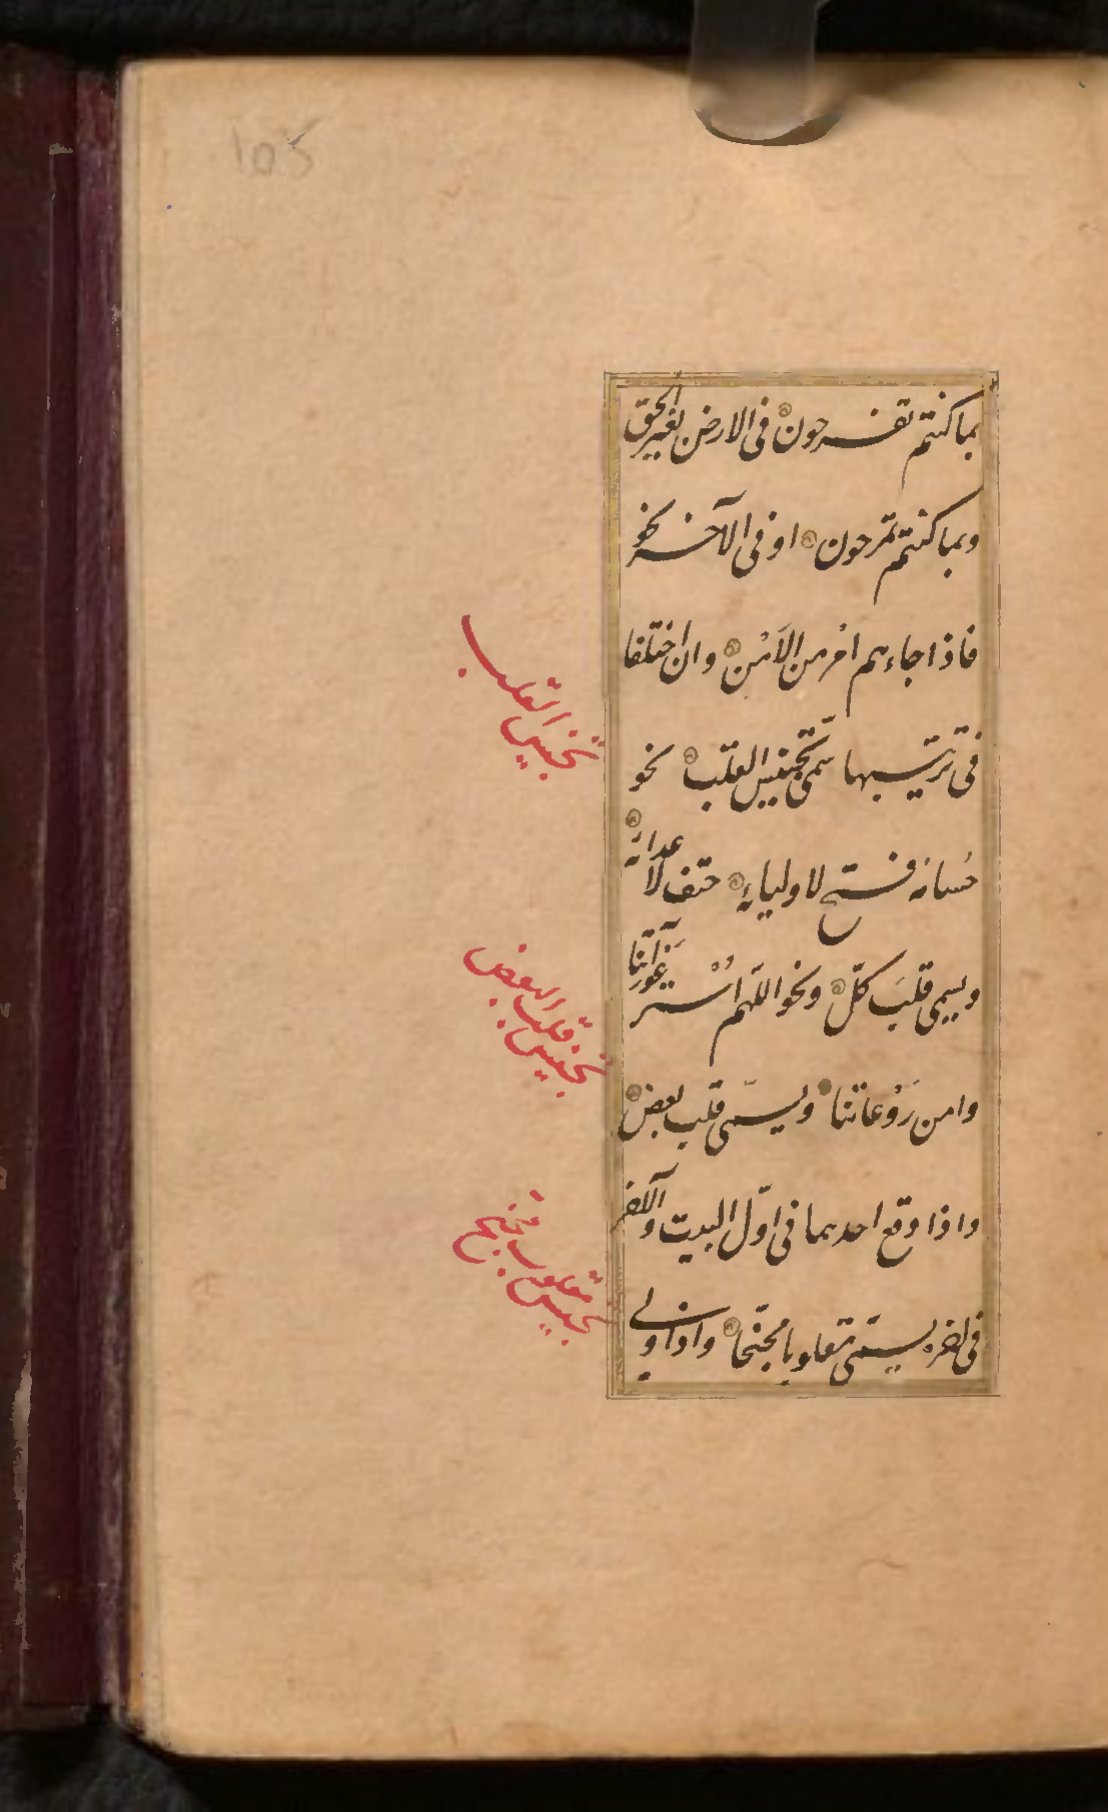 105
بما كنتم تفرحون فى الارض بغير الحق
وبما كنتم تمرحون او فى الآخر نحو
فاذا جاءهم امْر من الاَمْن وان اختلفا
فى ترتيبها سمّى تجنيس القلب نحو
حُسامه فتح لاوليائه حتف لاعدائه
ويسمى قلبَ كلّ ونحو اللّهم اسْتُر عَوْراتنا
وامن رَوْعاتنا ويسمّى قلب بعض
واذا وقع احدهما فى اوّل البيت والآخر
فى اخره يسمّى مقلوبا مجنّحا واذا ولى
تجنيس القلب
تجنيس قلب البعض
تجنيس مقلوب مجنح